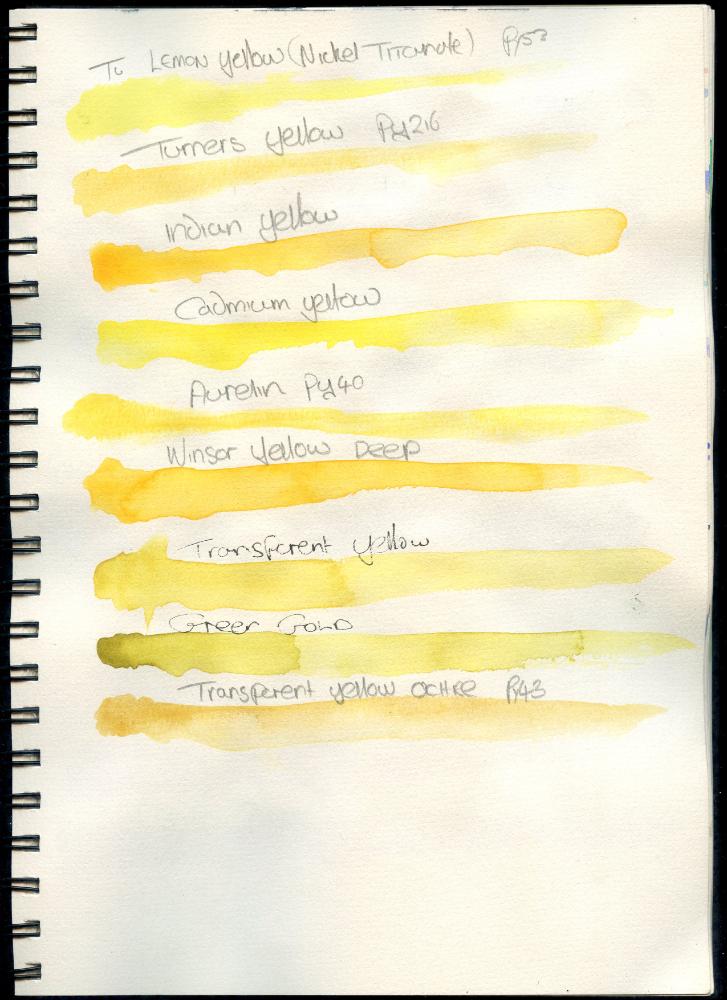 Lemon yellow (Nickel Titanate) Py53
Turners yellow Py216
Indian yellow
Cadmium yellow
Aurelin Py40
Winsor yellow Deep
Transparent yellow
Green Gold
Transparent yellow ochre Py43